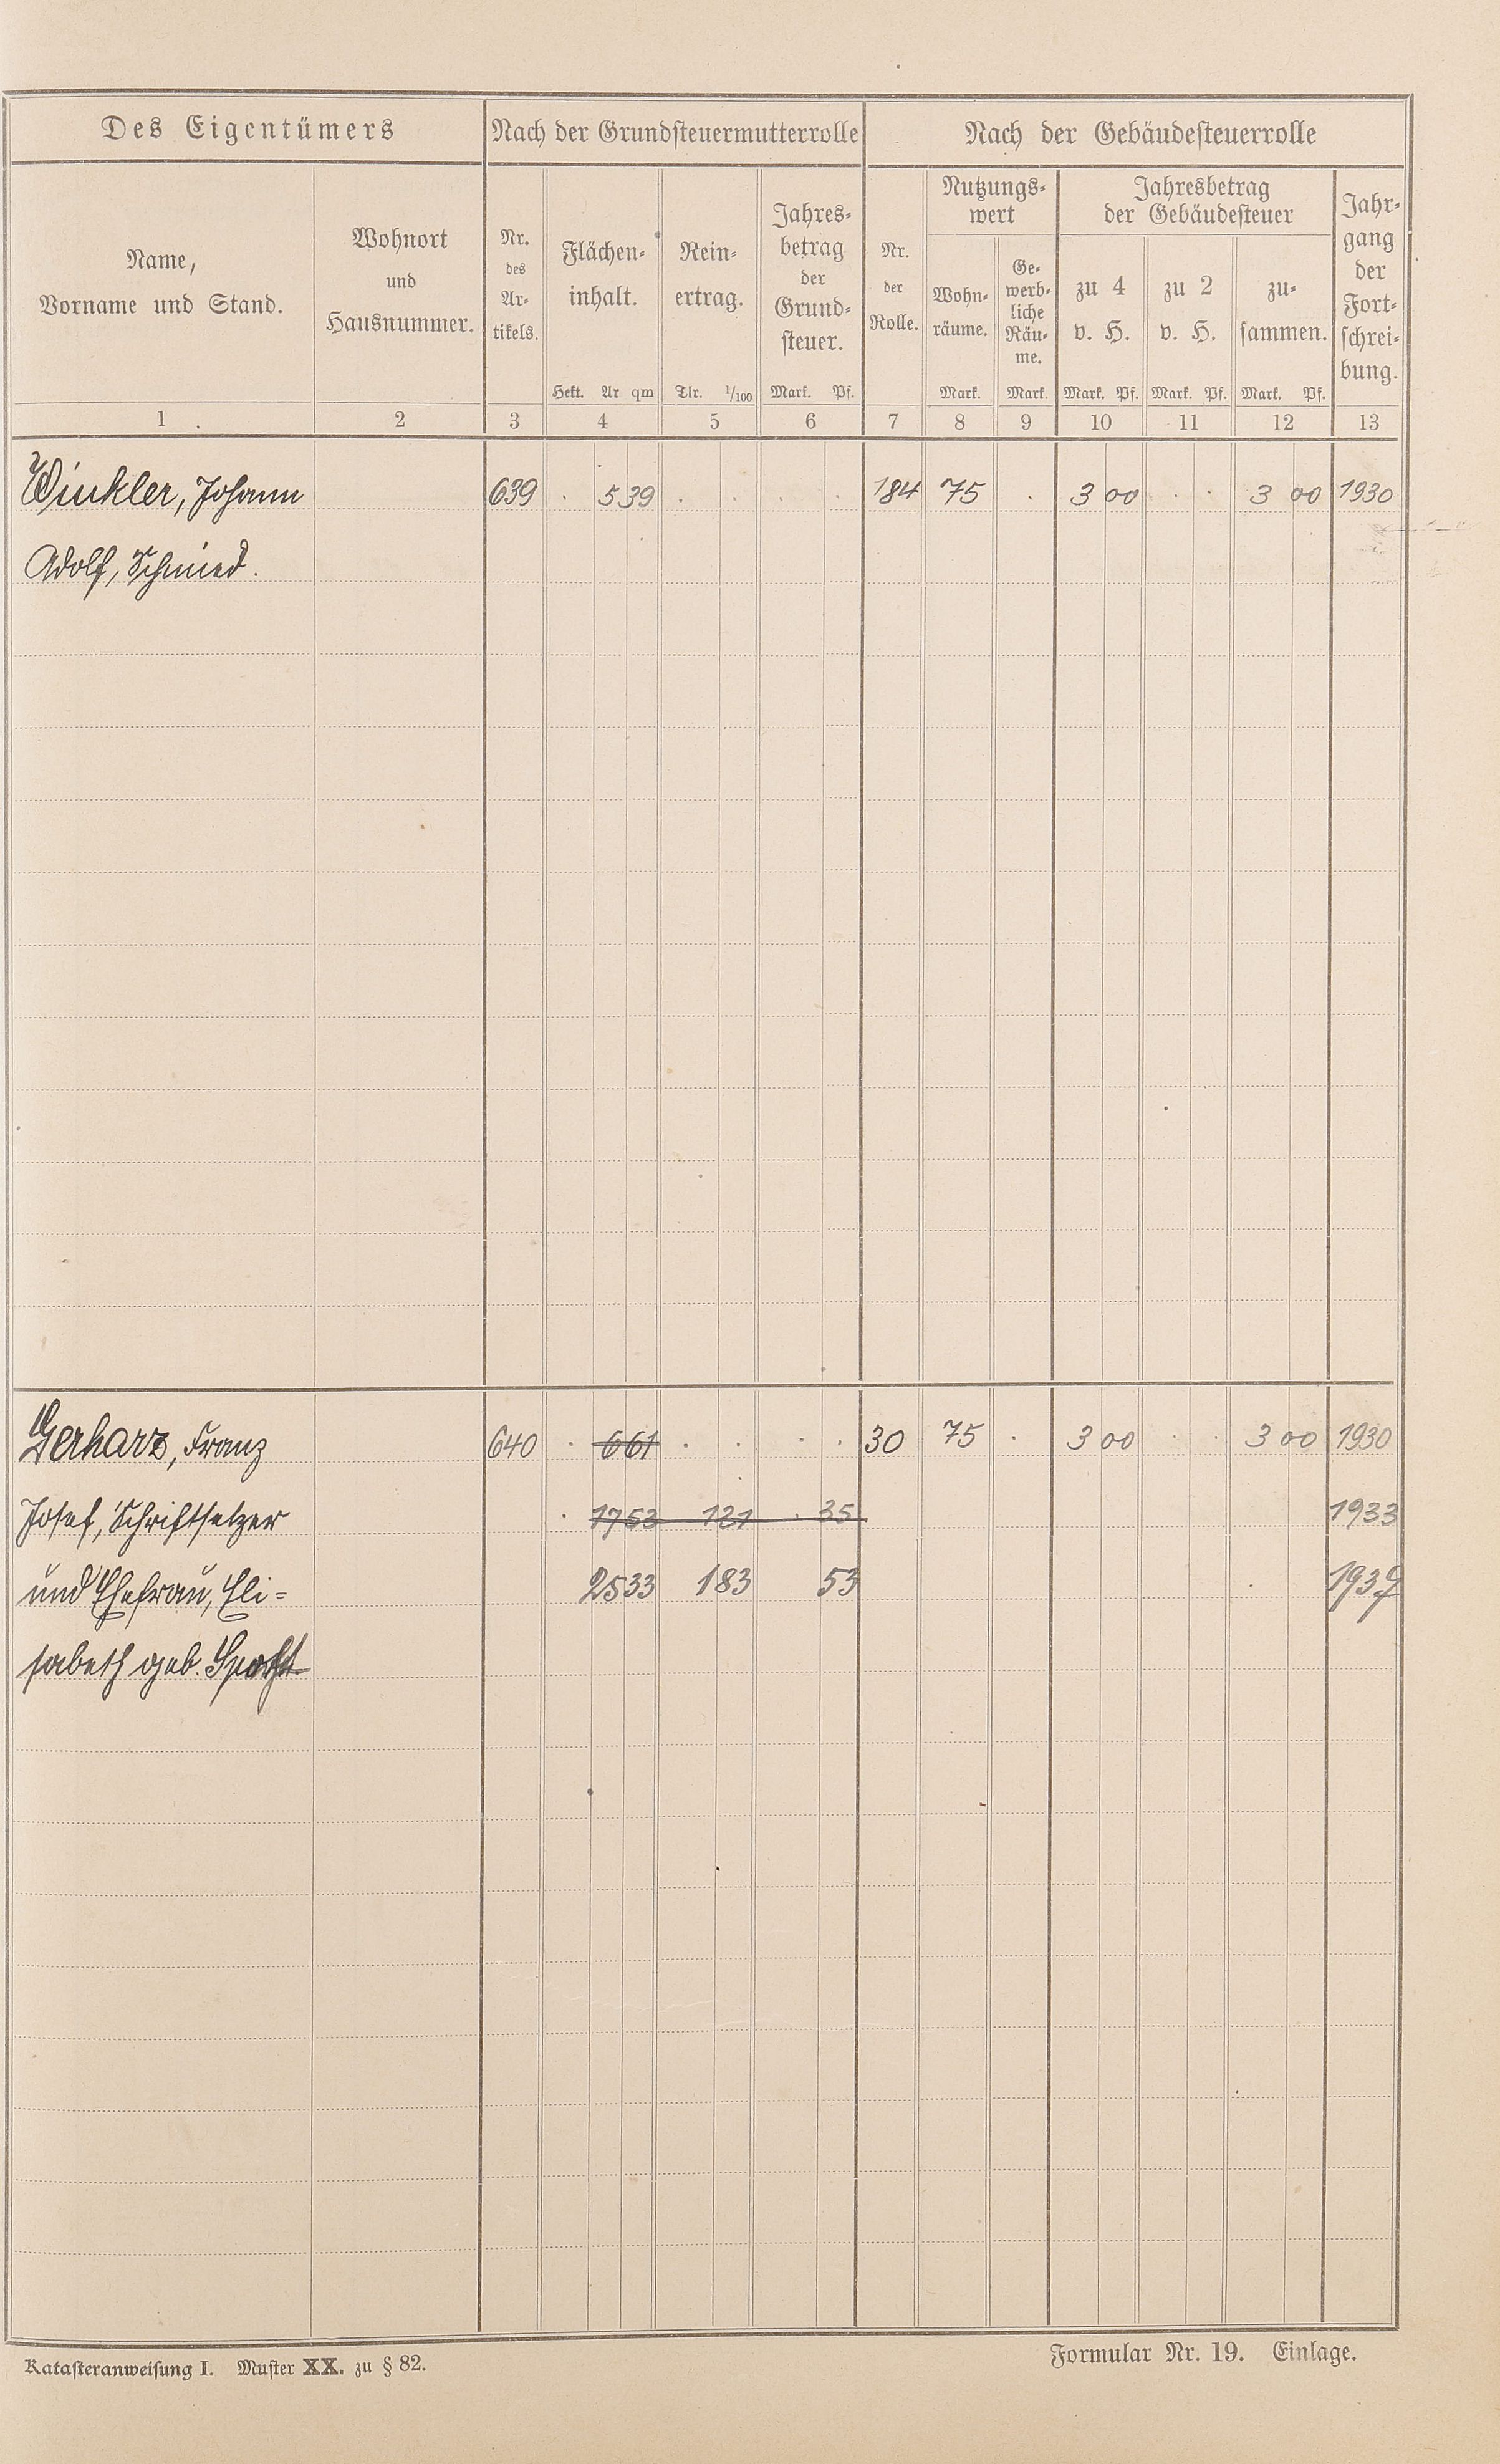 Des Eigentümers
Nach der Grundsteuermutterrolle
Nach der Gebäudesteuerrolle
Name,
Vorname und Stand.
Wohnort
und
Hausnummer.
Nr.
des
Ar-
tikels.
Flächen-
inhalt.
Hekt. Ar qm
Rein-
ertrag.
Tlr. 1/100
Jahres-
betrag
der
Grund-
steuer.
Mark. Pf.
Nr.
der
Rolle.
Nutzungs-
wert
Wohn-
räume.
Mark.
Ge-
werb-
liche
Räu-
me.
Mark.
Jahresbetrag
der Gebäudesteuer
zu 4
v. H.
Mark. Pf.
zu 2
v. H.
Mark. Pf.
zu-
sammen.
Mark. Pf.
Jahr-
gang
der
Fort-
schrei-
bung.
1 2 3 4 5 6 7 8 9 10 11 12 13
Winkler, Johann 639 . 5 39 . . . . 184 75 . 3 00 . . 3 00 1930
Adolf, Schmied.
Gerharz, Franz 640 . 6 61 . . . . 30 75 . 3 00 . . 3 00 1930
Josef, Schriftsetzer . 17 53 1 21 . 35 1933
und Ehefrau, Eli- 25 33 1 83 53
sabeth geb.
Katasteranweisung I. Muster XX. zu § 82.
Formular Nr. 19. Einlage.